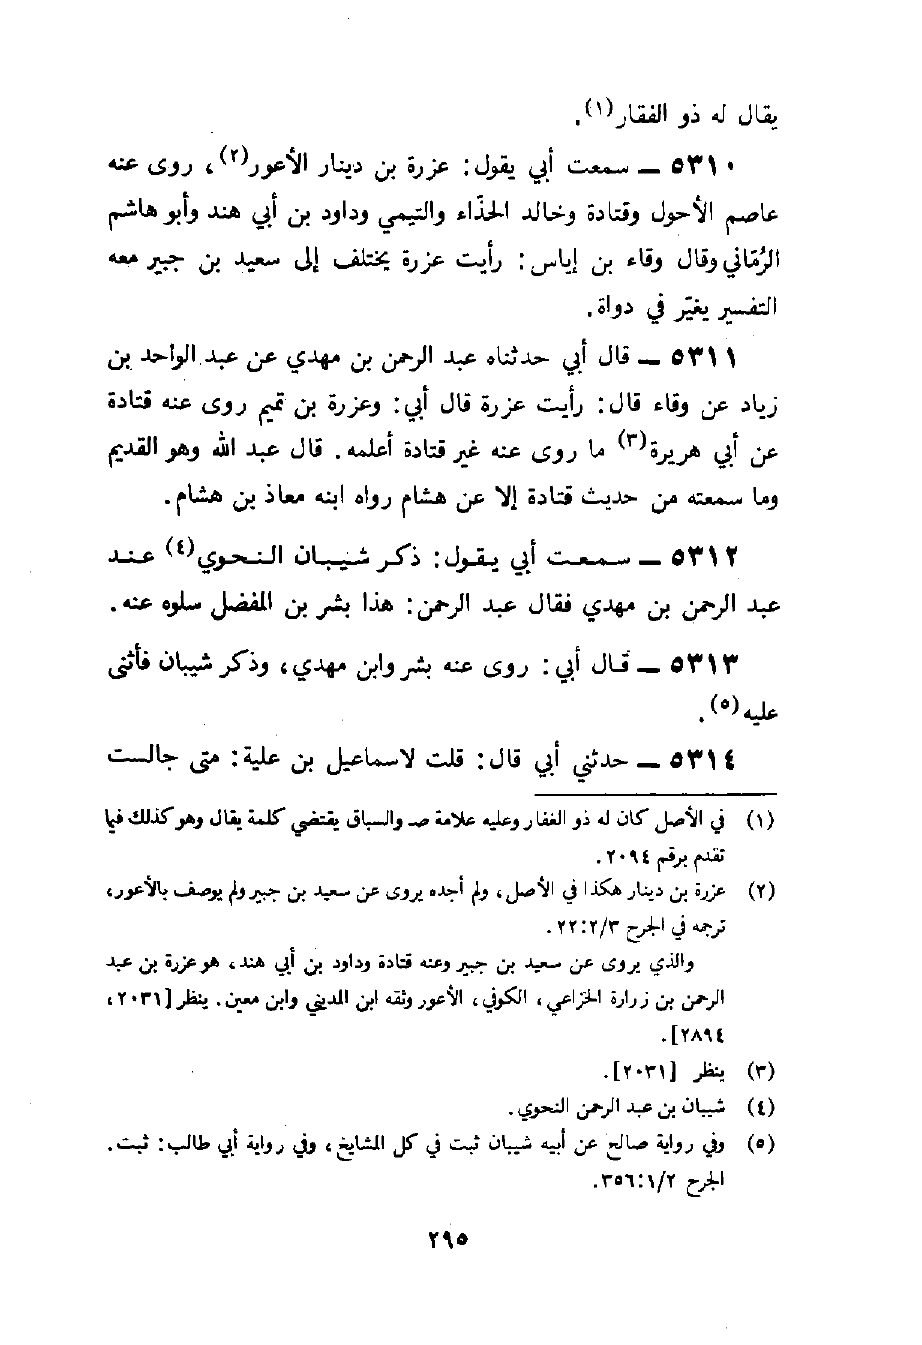 يقال له ذو الفقار(١).
٥٣١٠ ــ سمعت أبي يقول: عزرة بن دينار الأعور(٢)، روى عنه
عاصم الأحول وقتادة وخالد الحذّاء والتيمي وداود بن أبي هند وأبو هاشم
الرُمّاني وقال وقاء بن إياس: رأيت عزرة يختلف إلى سعيد بن جبير معه
التفسير يغيّر في دواة.
٥٣١١ ــ قال أبي حدثناه عبد الرحمن بن مهدي عن عبد الواحد بن
زياد عن وقاء قال: رأيت عزرة قال أبي: وعزرة بن تميم روى عنه قتادة
عن أبي هريرة(٣) ما روى عنه غير قتادة أعلمه. قال عبد الله وهو القديم
وما سمعته من حديث قتادة إلا عن هشام رواه ابنه معاذ بن هشام.
٥٣١٢ ــ سمعت أبي يقول: ذكر شيبان النحوي(٤) عند
عبد الرحمن بن مهدي فقال عبد الرحمن: هذا بشر بن المفضل سلوه عنه.
٥٣١٣ ــ قال أبي: روى عنه بشر وابن مهدي، وذكر شيبان فأثنى
عليه(٥).
٥٣١٤ ــ حدثني أبي قال: قلت لاسماعيل بن علية: متى جالست
(١) في الأصل كان له ذو الغفار وعليه علامة صـ والسباق يقتضي كلمة يقال وهو كذلك فيما
تقدم برقم ٢٠٩٤.
(٢) عزرة بن دينار هكذا في الأصل، ولم أجده يروى عن سعيد بن جبير ولم يوصف بالأعور،
ترجمه في الجرح ٢٢:٢/٣.
والذي يروى عن سعيد بن جبير وعنه قتادة وداود بن أبي هند، هو عزرة بن عبد
الرحمن بن زرارة الخزاعي، الكوفي، الأعور وثقه ابن المديني وابن معين. ينظر [٢٠٣١،
٢٨٩٤].
(٣) ينظر [٢٠٣١].
(٤) شيبان بن عبد الرحمن النحوي.
(٥) وفي رواية صالح عن أبيه شيبان ثبت في كل المشايخ، وفي رواية أبي طالب: ثبت.
الجرح ٣٥٦:١/٢.
٢٩٥